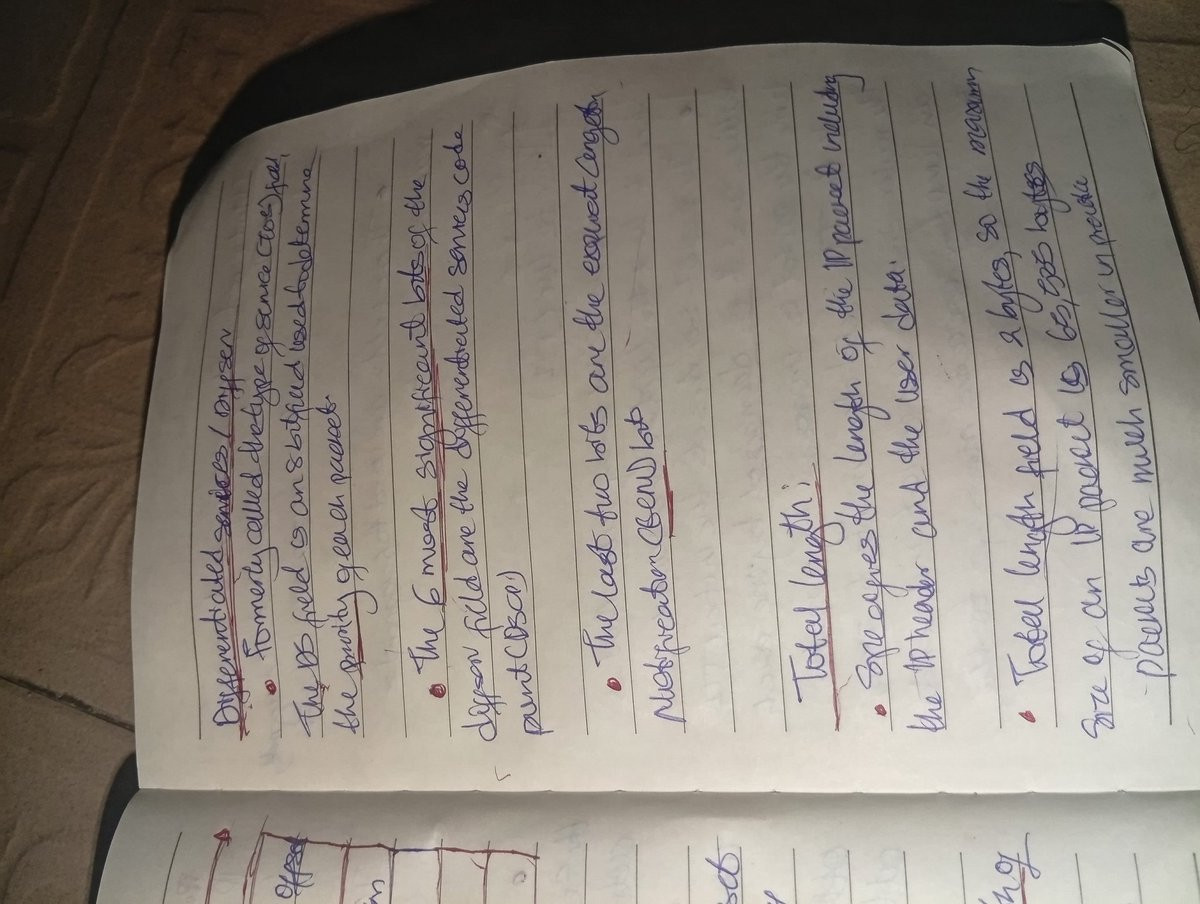 Differentiated services / Diffserv
• Formerly called the type of service (TOS) field,
The DS field is an 8 bit field used to determine
the priority of each packet.
• The 6 most significant bits of the
diffserv field are the differentiated services code
point (DSCP)
• The last two bits are the congestion
Notification (ECN) bits
Total length:
• Specifies the length of the IP packet including
the IP header and the user data.
• Total length field is 2 bytes, so the maximum
size of an IP packet is 65,535 bytes
packets are much smaller in practice
offset
ing